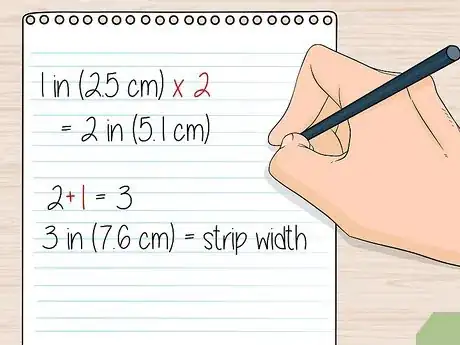 1 in (2.5 cm) x 2
= 2 in (5.1 cm)
2+1 = 3
3 in (7.6 cm) = strip width